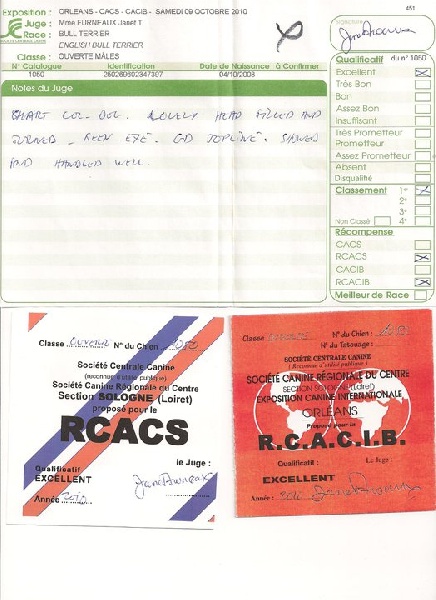 Exposition : ORLEANS - CACS - CACIB - SAMEDI 09 OCTOBRE 2010
Juge : Mme FURNEAUX Janet T
Race : BULL TERRIER
ENGLISH BULL TERRIER
Classe : OUVERTE MÂLES
N° Catalogue Identification Date de Naissance à Confirmer
1050 250269602347307 04/10/2008
Notes du Juge
HEAD FILLED AND
TURNED - KEEN EYE. GD TOPLINE. SHOWED
AND HANDLED WELL.
451
Signature
Qualificatif du n° 1050
Excellent
Très Bon
Bon
Assez Bon
Insuffisant
Très Prometteur
Prometteur
Assez Prometteur
Absent
Disqualifié
Classement 1er
2e
3e
Non Classé 4e
Récompense
CACS
RCACS
CACIB
RCACIB
Meilleur de Race
Classe OUVERTE N° du Chien : 1050
Société Centrale Canine
(reconnue d'utilité publique)
Société Canine Régionale du Centre
Section SOLOGNE (Loiret)
proposé pour le
RCACS
Qualificatif le Juge :
EXCELLENT
Année : 2010
Classe N° du Chien : 1050
N° du Tatouage :
SOCIÉTÉ CENTRALE CANINE
(Reconnue d'utilité publique)
SOCIÉTÉ CANINE RÉGIONALE DU CENTRE
SECTION SOLOGNE (Loiret)
EXPOSITION CANINE INTERNATIONALE
ORLÉANS
Proposé pour le
R.C.A.C.I.B.
Qualificatif : Le Juge :
EXCELLENT
Année : 2010